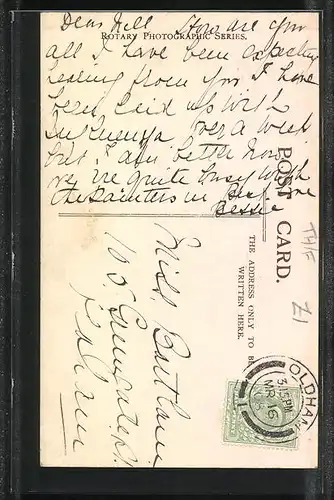 Dear Nell How are you
all I have been expecting
hearing from you I have
been laid up with
Influenza over a week
but I am better now
we are quite busy with
the Painters in
Bessie
ROTARY PHOTOGRAPHIC SERIES.
POST CARD.
THE ADDRESS ONLY TO BE
WRITTEN HERE.
Miss
TH/F
Z1
OLDHAM
3.15PM
MR 16
1